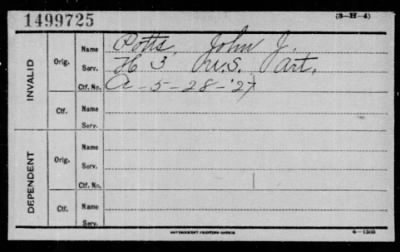 1499725
(3-H-4)
INVALID
Orig.
Name Potts, John J.
Serv. H 3 U.S. Art.
Ctf. No. A-5-28-'27
Ctf.
Name
Serv.
DEPENDENT
Orig.
Name
Serv.
Ctf. No.
Ctf.
Name
Serv.
GOVERNMENT PRINTING OFFICE